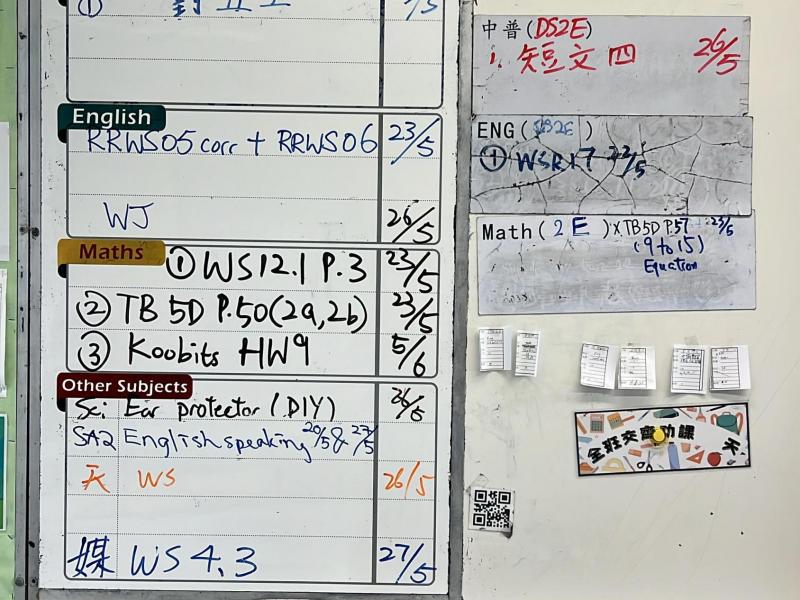 ①
English
RRWS05 corr + RRWS06 23/5
WJ 26/5
Maths
① WS12.1 P.3 23/5
② TB 5D P.50(2a,2b) 23/5
③ Koobits HW9 5/6
Other Subjects
Sci Ear protector (DIY) 26/5
SA2 English speaking 20/5 & 27/5
天 WS 26/5
媒 WS 4.3 27/5
中普(DS2E)
1. 短文四 26/5
ENG( )
① WSR17 22/5
Math( 2E )×TB5D P.57 23/5
(9 to 15)
Equation
全班交齊功課 天